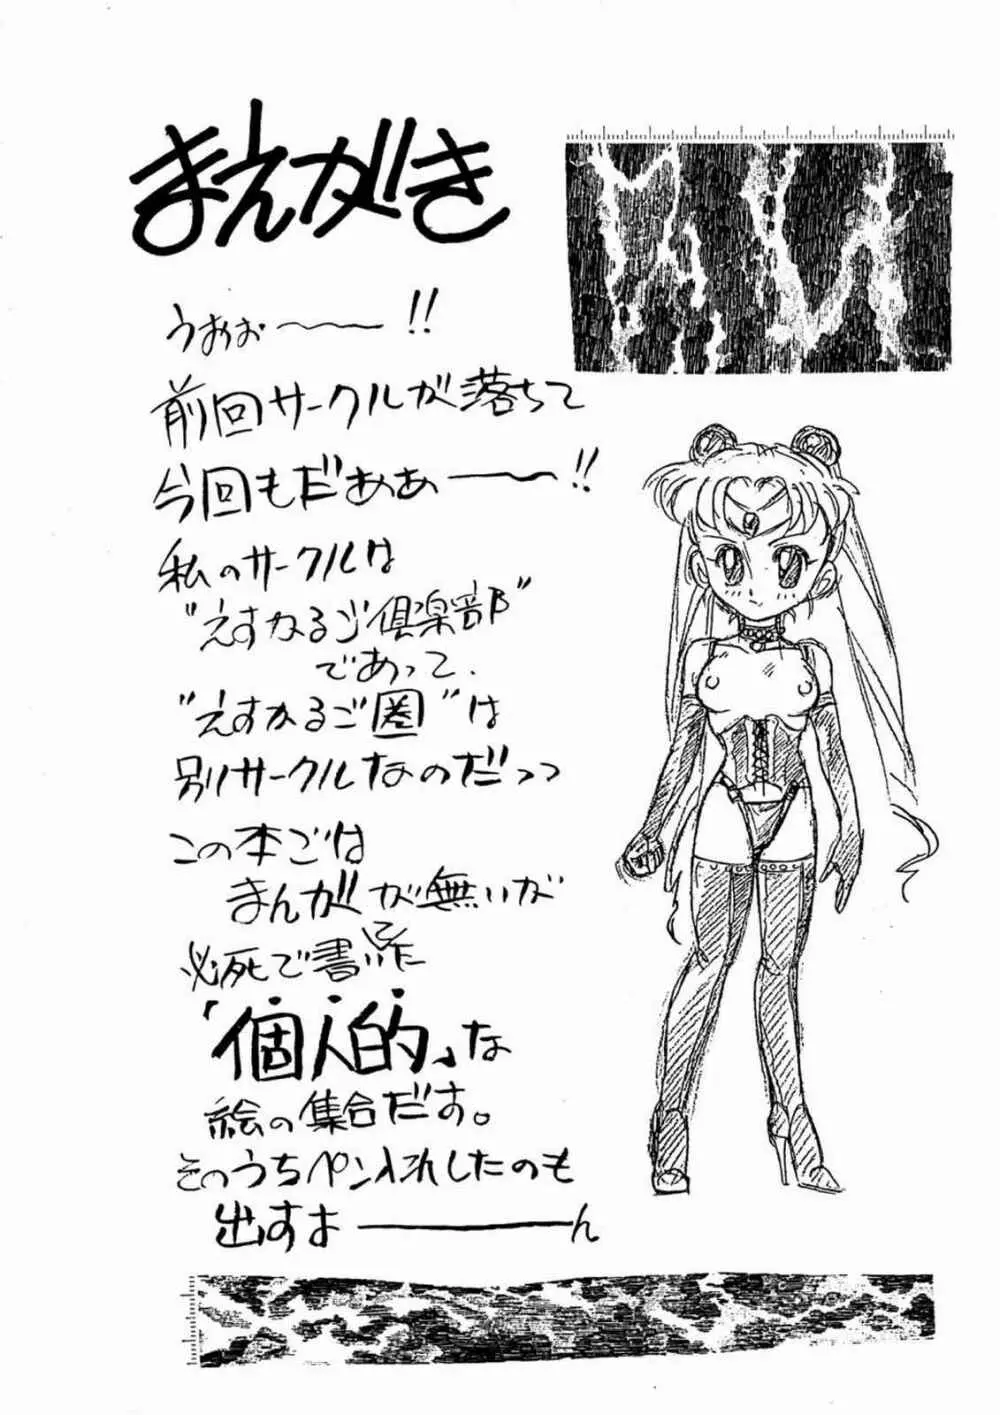 まえがき
うおぉ〜〜!!
前回サークルが落ちて
今回もだぁぁー〜!!
私のサークルは
"えすかるご倶楽部"
であって.
"えすかるご圏"は
別サークルなのだっっ
この本では
まんがが無いが
必死で書いた
「個人的」な
絵の集合だす。
そのうちペン入れしたのも
出すよ――ん